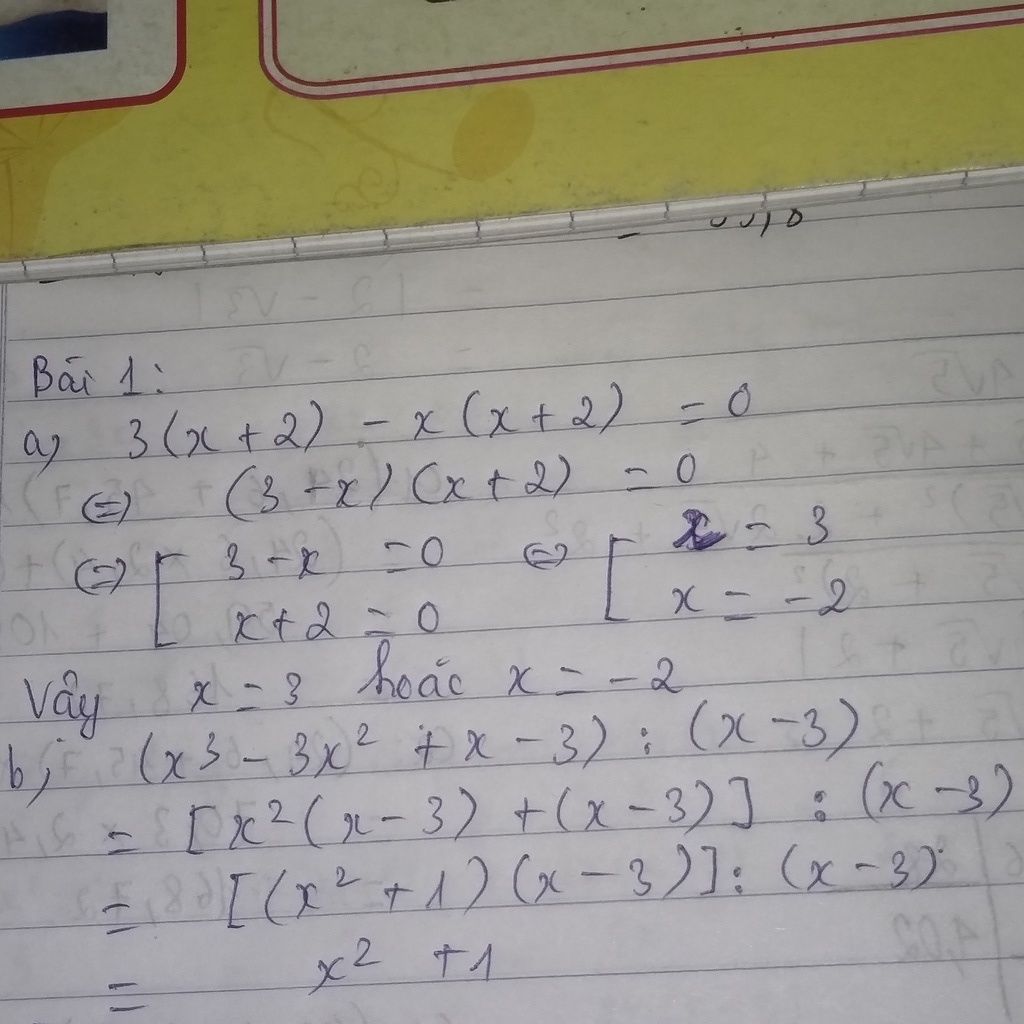 Bài 1:
a) 3(x+2) - x(x+2) = 0
⇔ (3-x)(x+2) = 0
⇔ [ 3-x = 0 ⇔ [ x = 3
x+2 = 0 x = -2
Vậy x = 3 hoặc x = -2
b; (x3 - 3x² + x - 3) : (x-3)
= [x²(x-3) + (x-3)] : (x-3)
= [(x² + 1)(x-3)] : (x-3)
= x² + 1